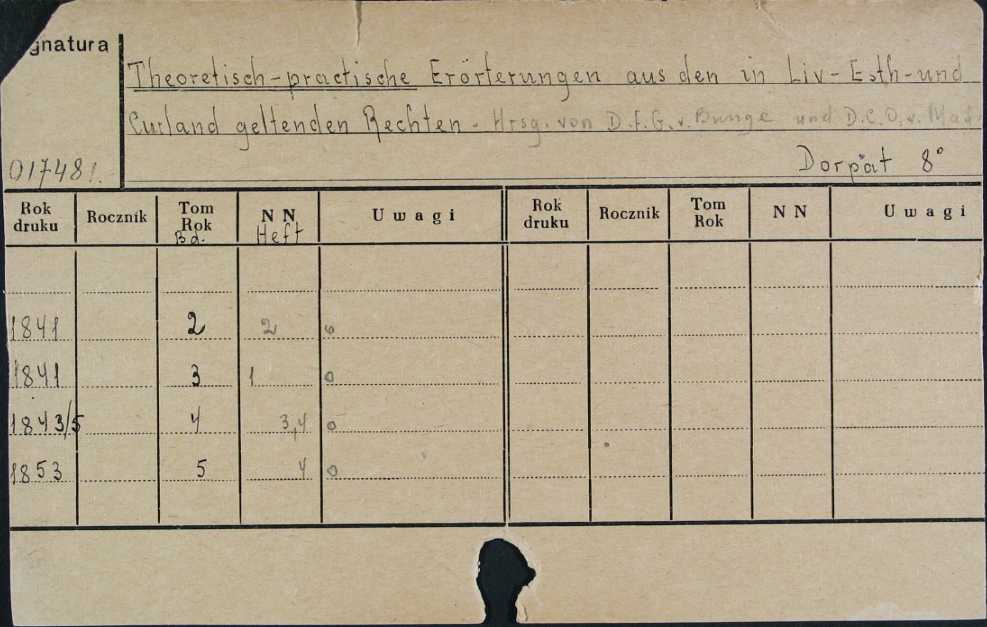 gnatura
Theoretisch-practische Erörterungen aus den in Liv- Esth- und
Curland geltenden Rechten - Hrsg. von D.F.G.v. Bunge und D.C.O.v. Mad
Dorpat 8°
01748
Rok druku Rocznik Tom Rok Bd. NN Heft Uwagi Rok druku Rocznik Tom Rok NN Uwagi
1841 2 2 o
1841 3 1 o
1843/5 4 3,4 o
1853 5 4 o